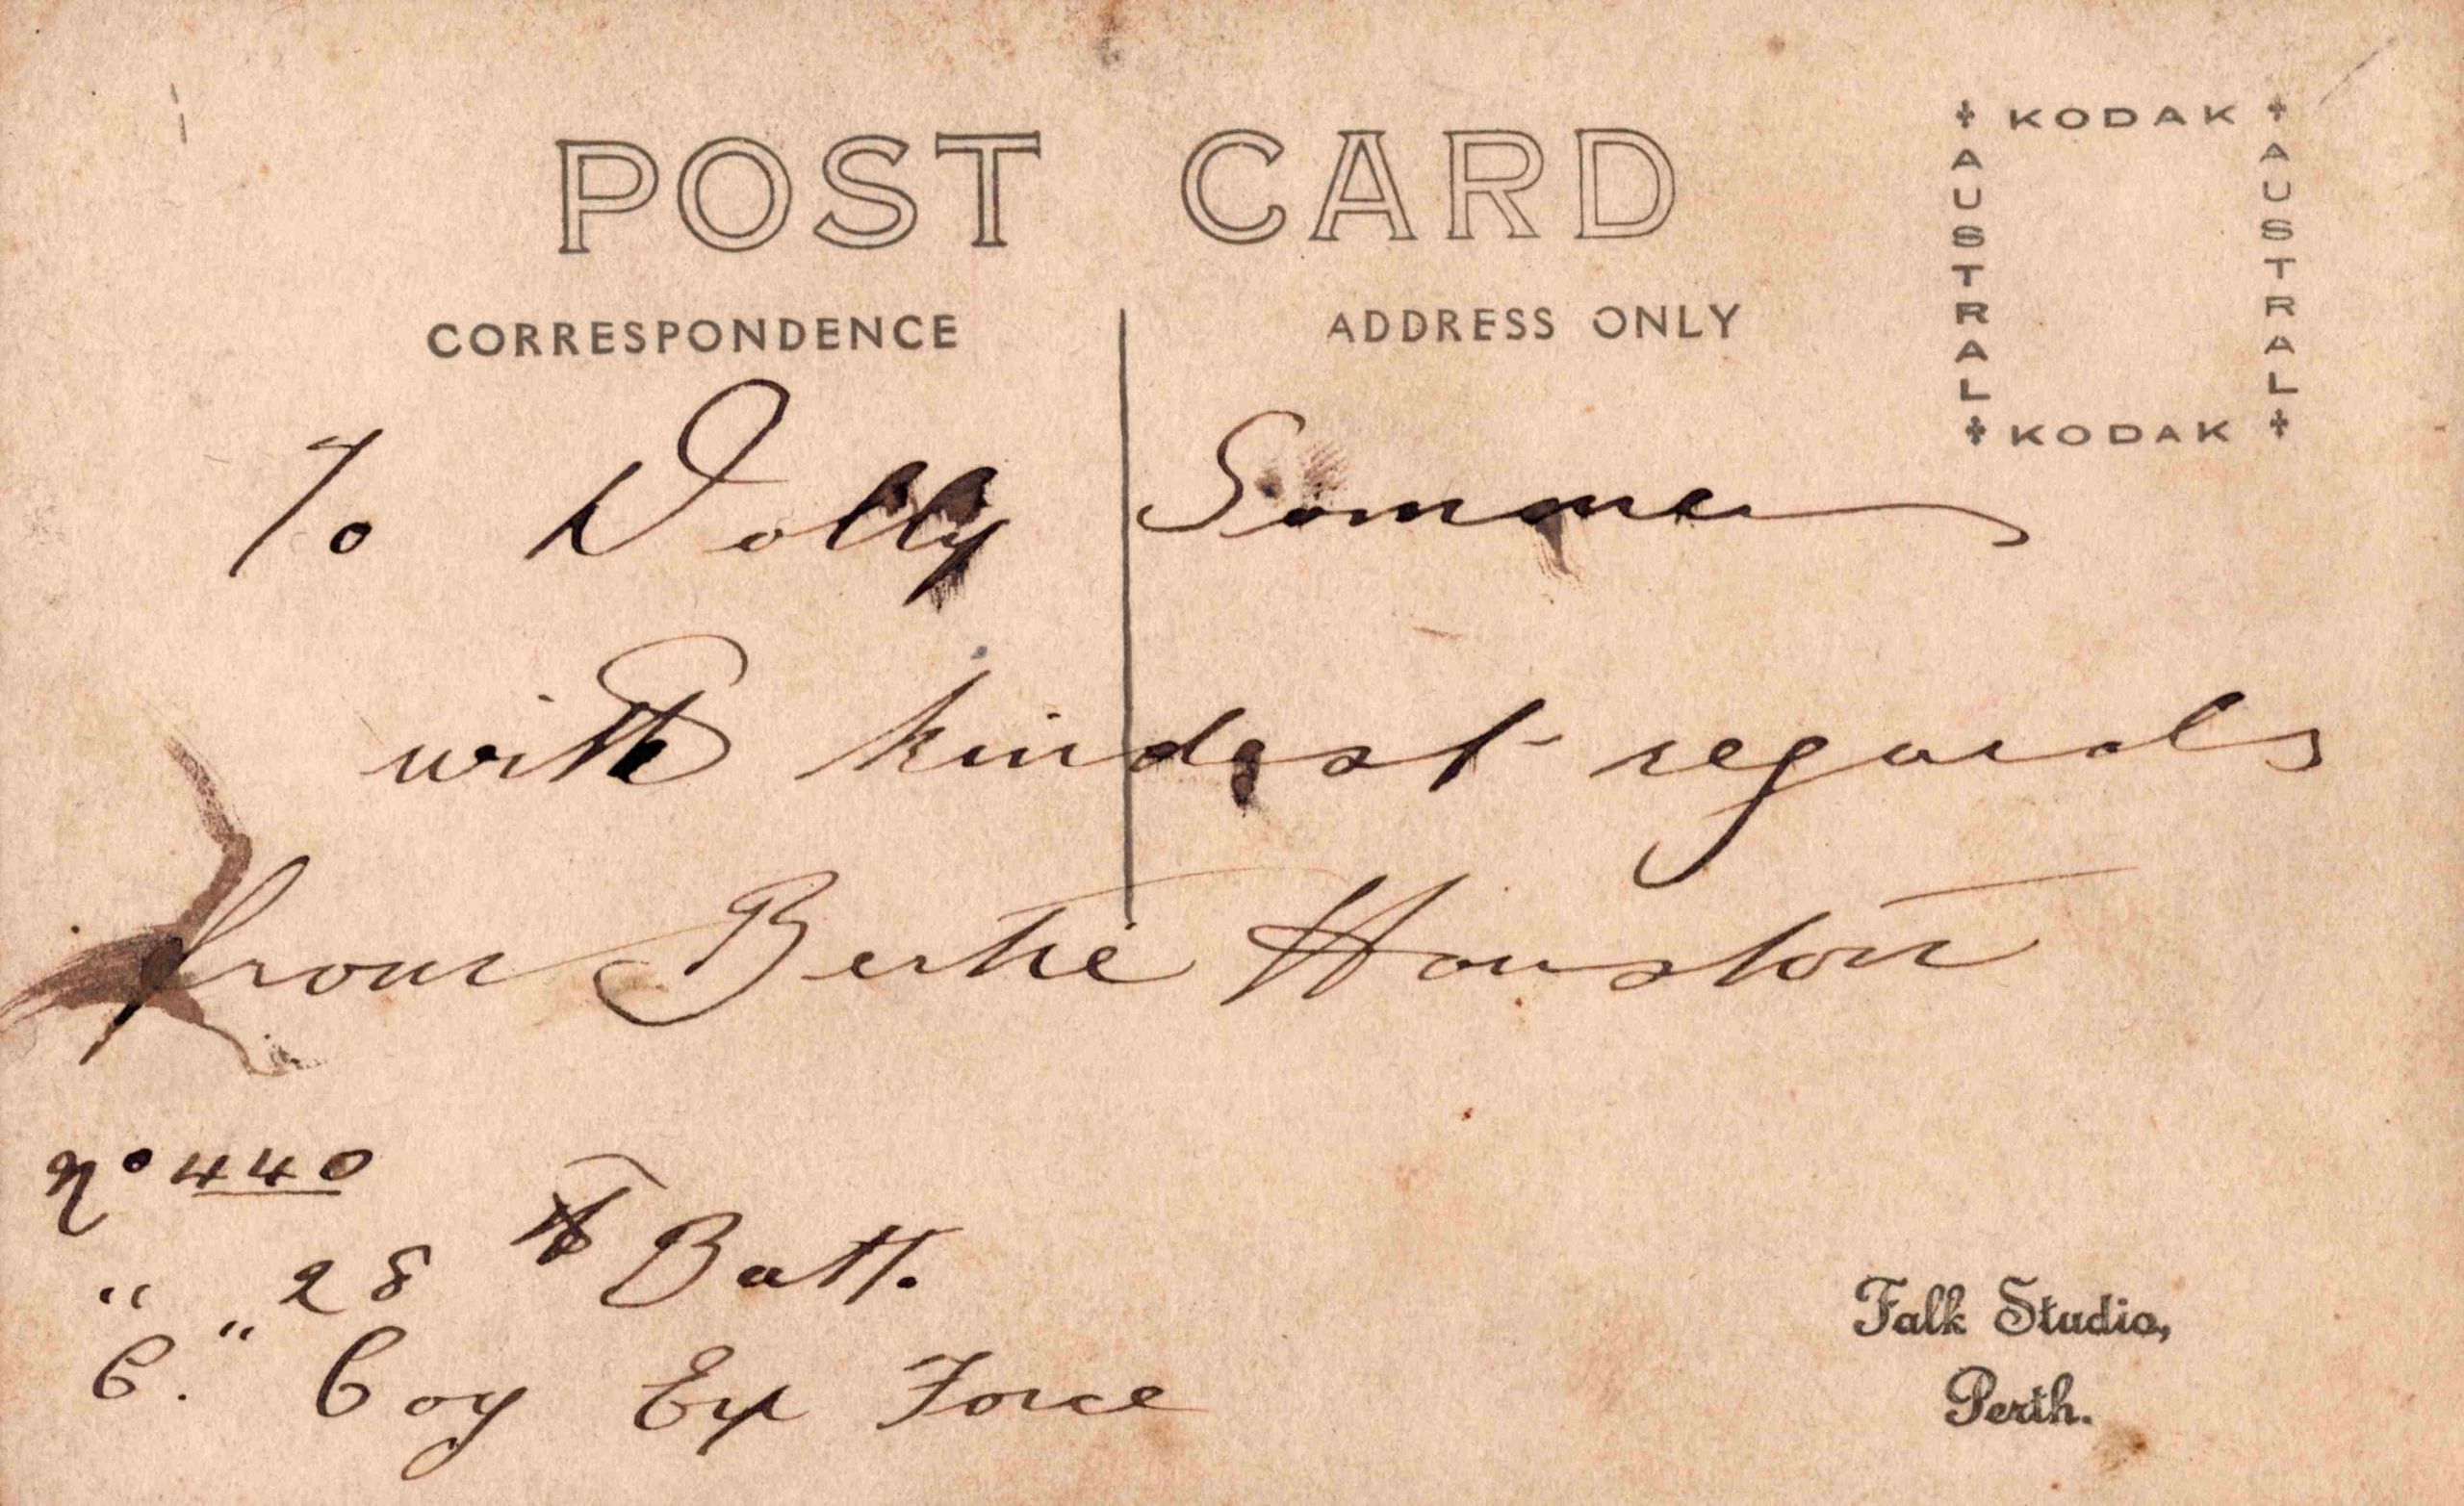 POST CARD
CORRESPONDENCE
ADDRESS ONLY
KODAK
AUSTRAL
AUSTRAL
KODAK
To Dolly
with kindest regards
from Bertie Houston
No 440
" " 28th Batt.
"C." Coy Exp Force
Falk Studio,
Perth.